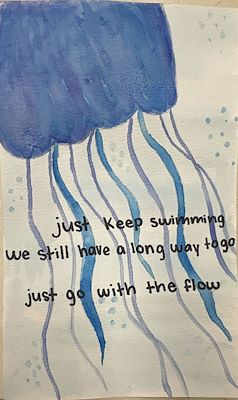 just Keep swimming
we still have a long way to go
just go with the flow